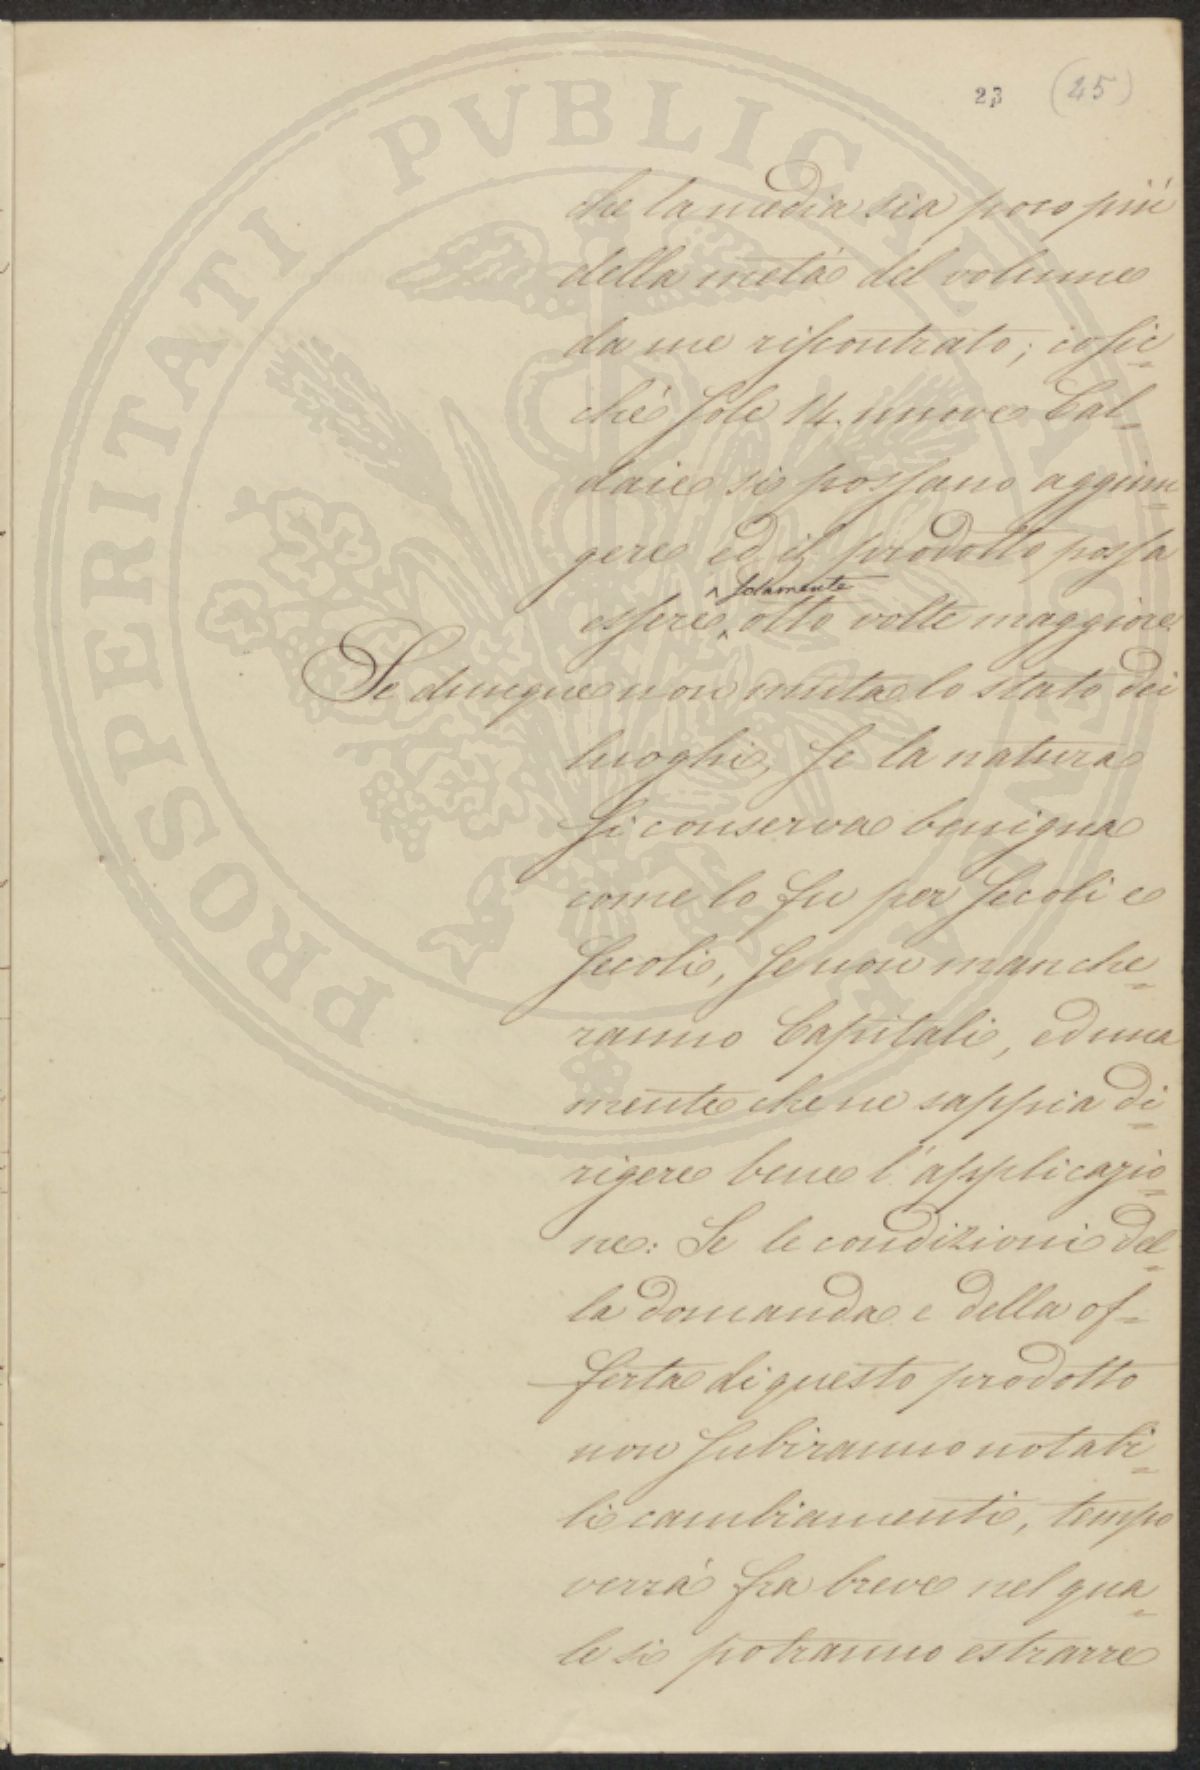 23 (45)
che la media sia poco più
della metà del volume
da me riscontrato; cosic-
chè sole 14. nuove Cal-
daie si possano aggiun-
gere ed il prodotto possa
solamente
essere otto volte maggiore.
Se dunque non muta lo stato dei
luoghi, se la natura
si conserva benigna
come lo fu per secoli e
secoli, se non manche-
ranno Capitali, ed una
mente che ne sappia di-
rigere bene l'applicazio-
ne: Se le condizioni del-
la domanda e della of-
ferta di questo prodotto
non subiranno notabi-
li cambiamenti, tempo
verrà fra breve nel qua-
le si potranno estrarre
PROSPERITATI PVBLICAE AVGENDAE